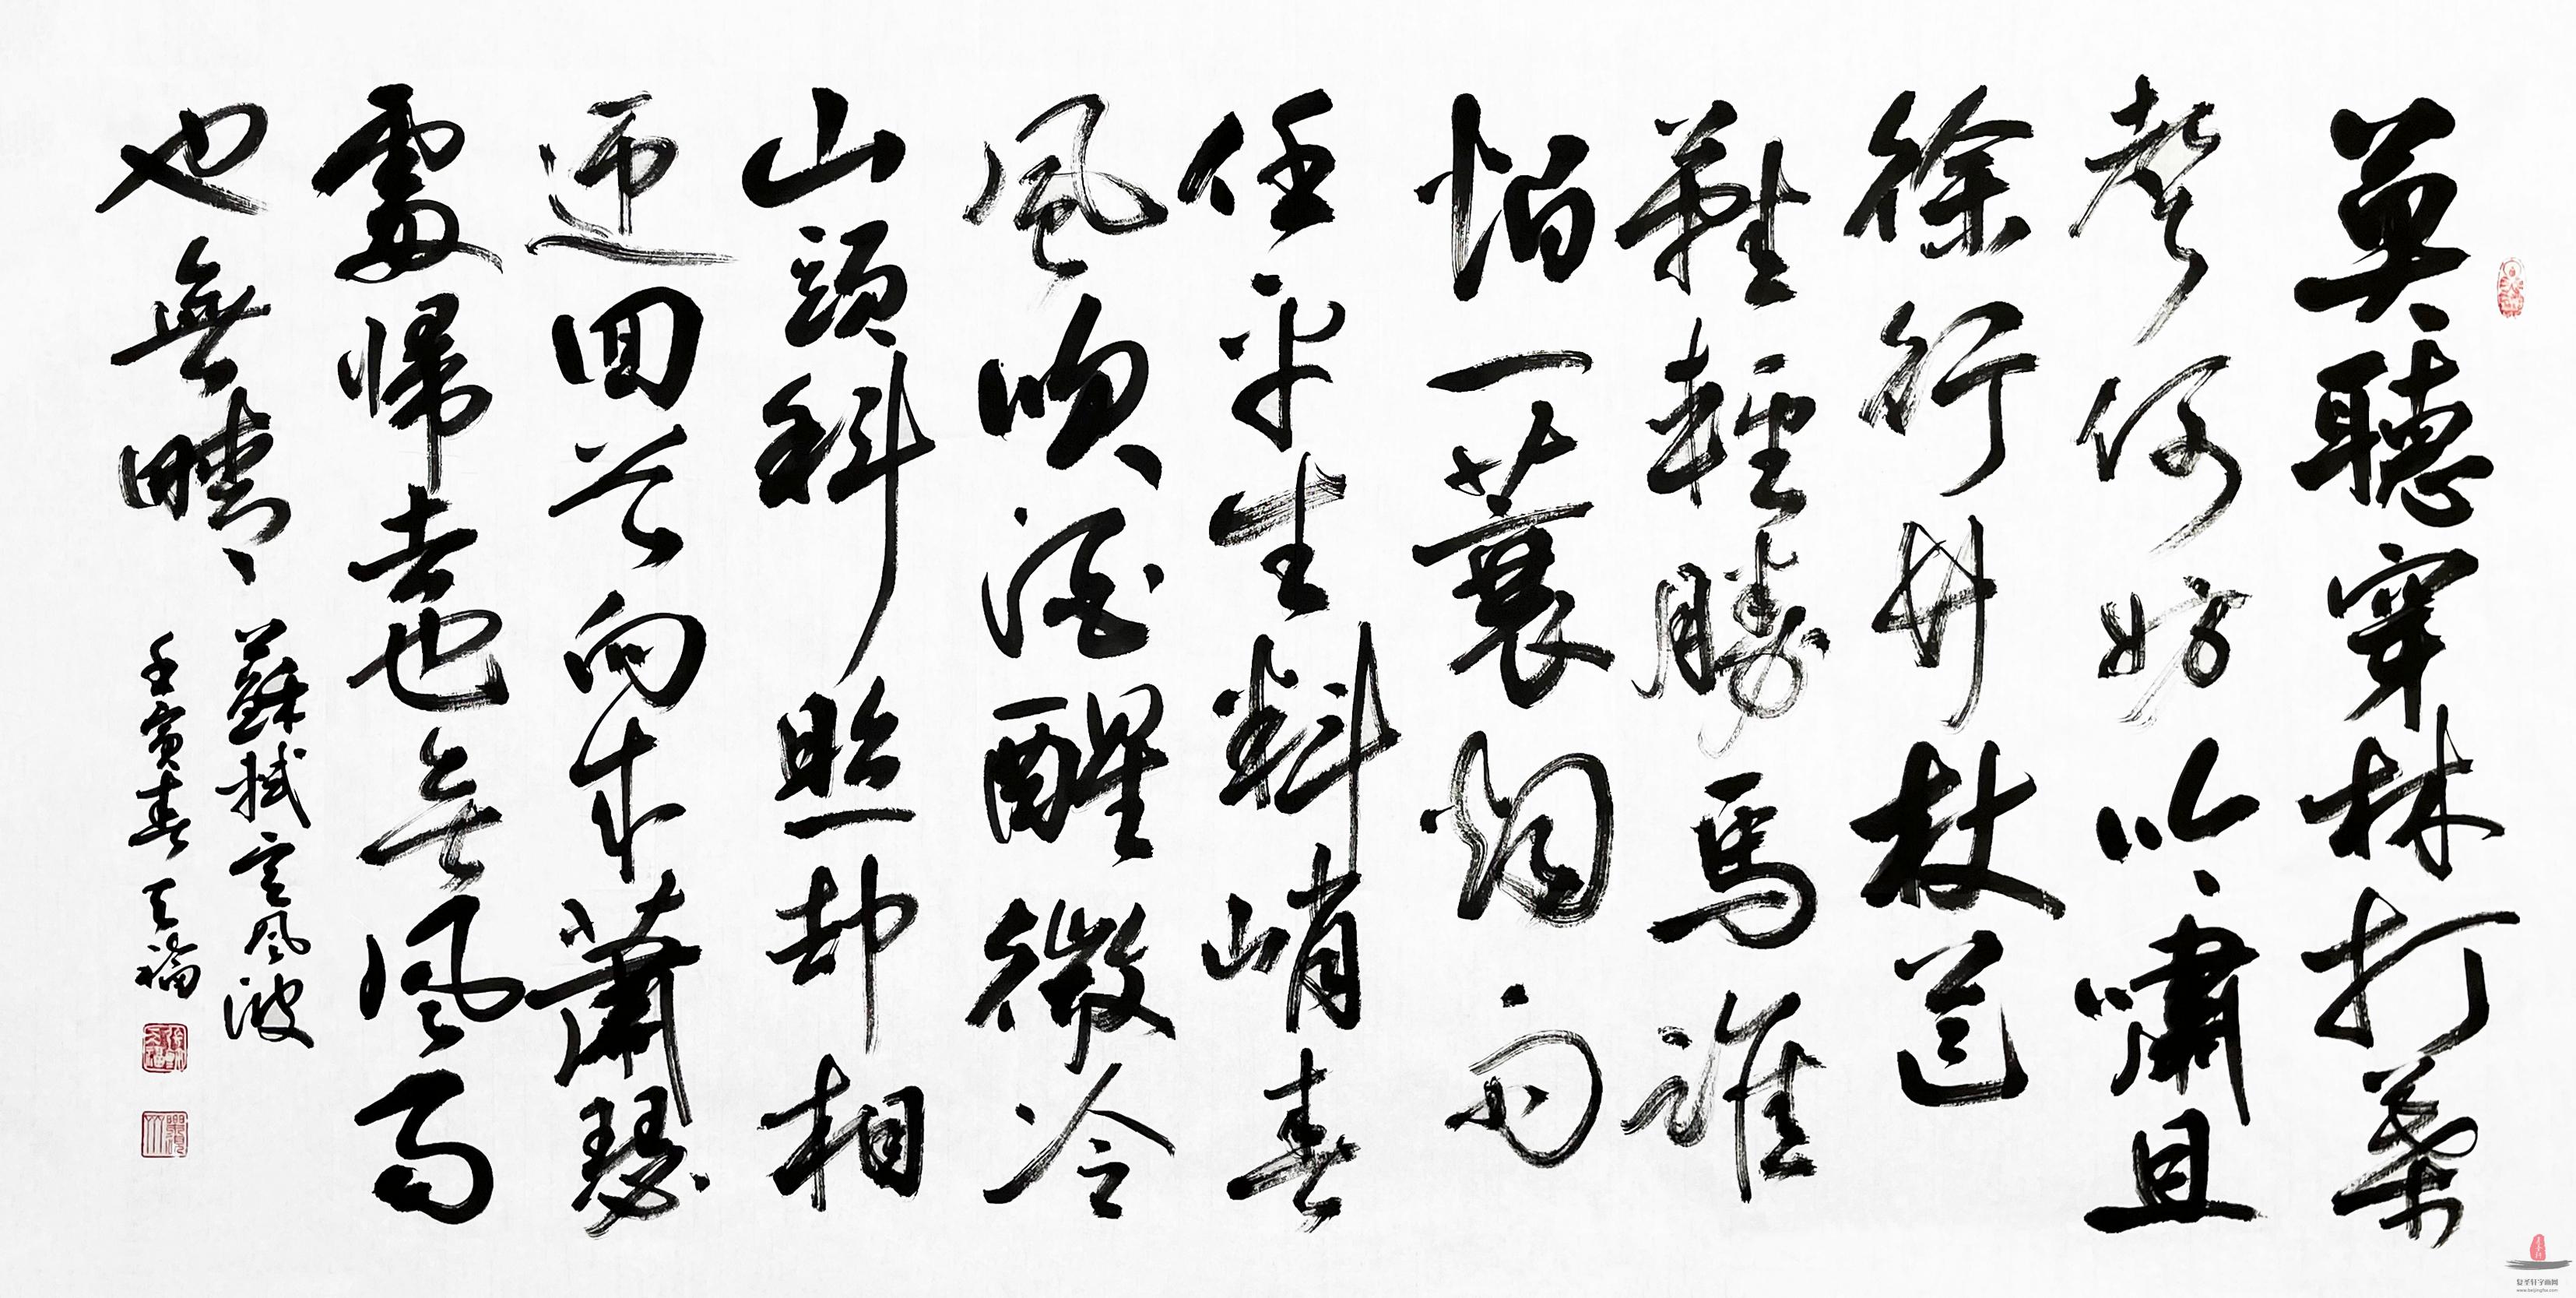 莫聽穿林打葉
聲何妨吟嘯且
徐行竹杖芒
鞋輕勝馬誰
怕一蓑烟雨
任平生料峭春
風吹酒醒微冷
山頭斜照却相
迎回首向來蕭瑟
處歸去也無風雨
也無晴
蘇軾定風波
壬寅春